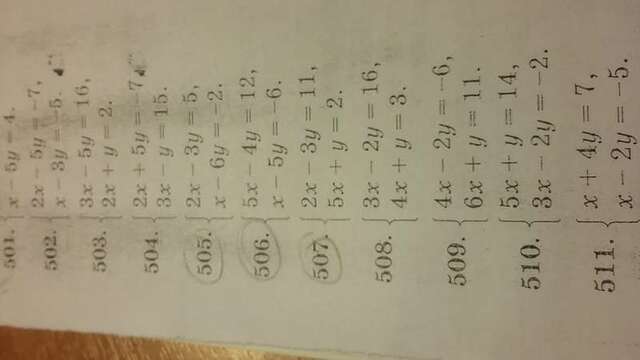 501. x − 5y = 4.
502. 2x − 5y = −7,
x − 3y = −5.
503. 3x − 5y = 16,
2x + y = 2.
504. 2x + 5y = −7,
3x − y = 15.
505. 2x − 3y = 5,
x − 6y = −2.
506. 5x − 4y = 12,
x − 5y = −6.
507. 2x − 3y = 11,
5x + y = 2.
508. 3x − 2y = 16,
4x + y = 3.
509. 4x − 2y = −6,
6x + y = 11.
510. 5x + y = 14,
3x − 2y = −2.
511. x + 4y = 7,
x − 2y = −5.